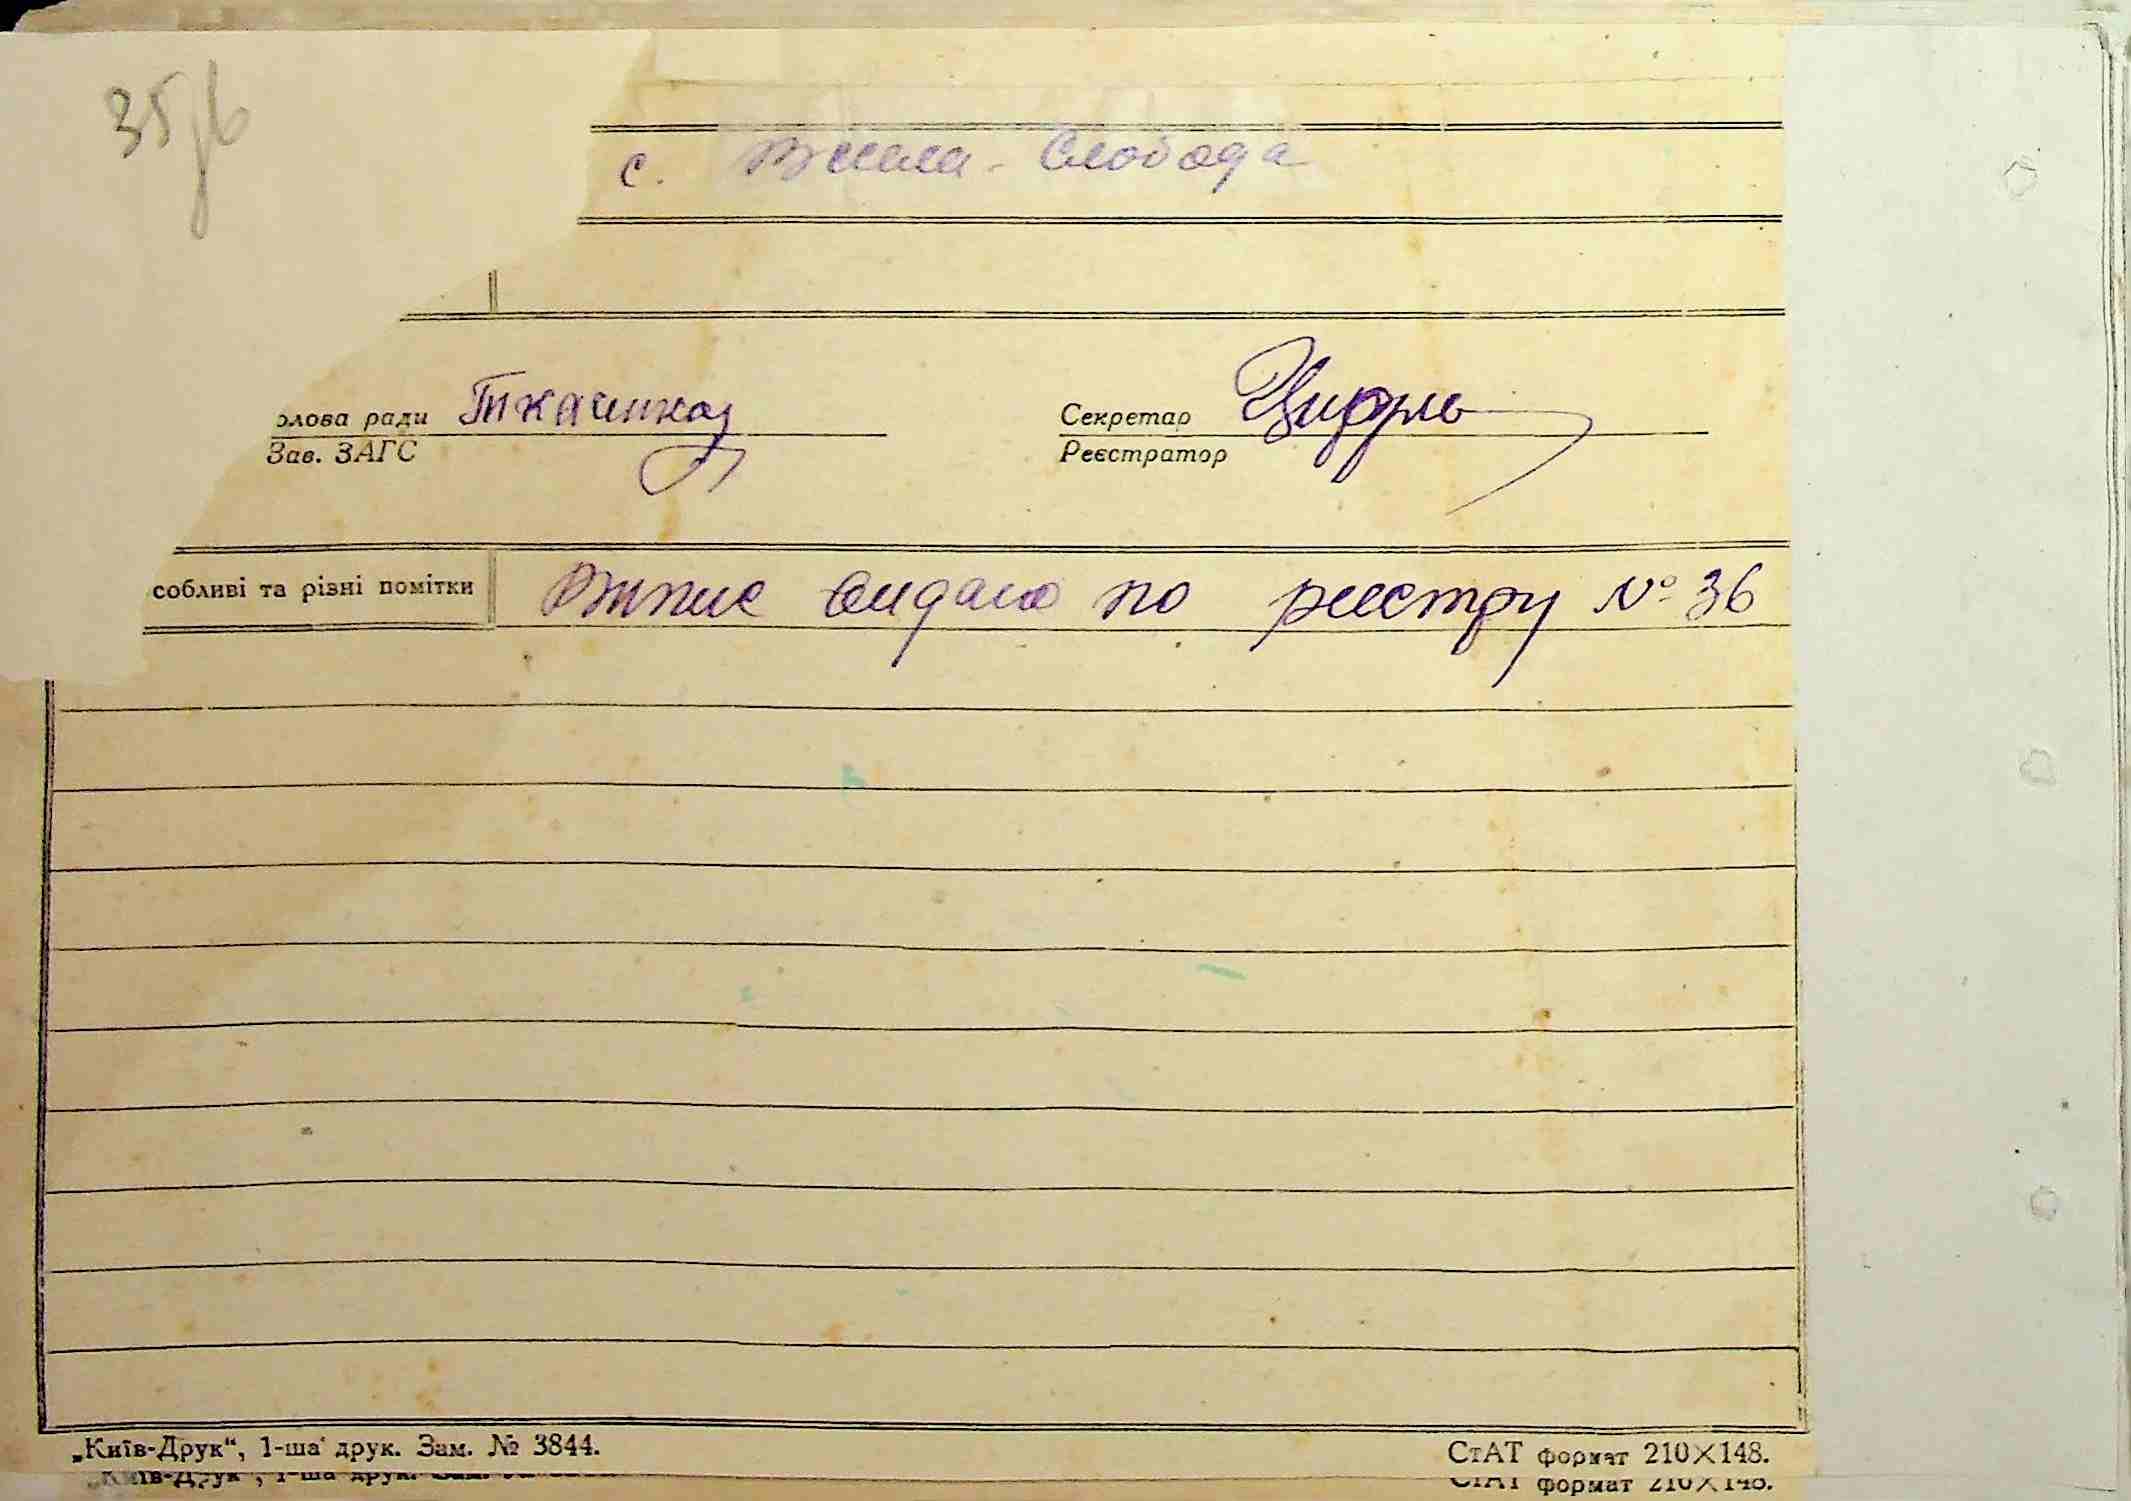 35
с. Весела-Слобода
олова ради Ткаченко Секретар
Зав. ЗАГС Реєстратор
собливі та різні помітки Випис видано по реєстру № 36
„Київ-Друк“, 1-ша друк. Зам. № 3844. СтАТ формат 210×148.
„Київ-Друк“, 1-ша друк. Зам. СтАТ формат 210×148.